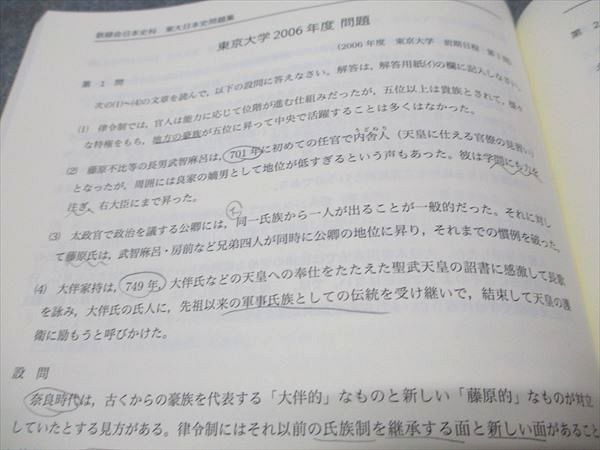 鉄緑会日本史科 東大日本史問題集
東京大学2006年度 問題
(2006年度 東京大学 前期日程 第1問)
第 1 問
次の(1)~(4)の文章を読んで，以下の設問に答えなさい。解答は，解答用紙(イ)の欄に記入しなさい。
(1) 律令制では，官人は能力に応じて位階が進む仕組みだったが，五位以上は貴族とされて，様々
な特権をもち，地方の豪族が五位に昇って中央で活躍することは多くはなかった。
(2) 藤原不比等の長男武智麻呂は，701年に初めての任官で内舎人（天皇に仕える官僚の見習い）
うどねり
となったが，周囲には良家の嫡男として地位が低すぎるという声もあった。彼は学問にも力を
注ぎ，右大臣にまで昇った。
(3) 太政官で政治を議する公卿には，同一氏族から一人が出ることが一般的だった。それに対し
て藤原氏は，武智麻呂・房前など兄弟四人が同時に公卿の地位に昇り，それまでの慣例を破った。
(4) 大伴家持は，749年，大伴氏などの天皇への奉仕をたたえた聖武天皇の詔書に感激して長歌
を詠み，大伴氏の氏人に，先祖以来の軍事氏族としての伝統を受け継いで，結束して天皇の護
衛に励もうと呼びかけた。
設 問
奈良時代は，古くからの豪族を代表する「大伴的」なものと新しい「藤原的」なものが対立
していたとする見方がある。律令制にはそれ以前の氏族制を継承する面と新しい面があること
第 2